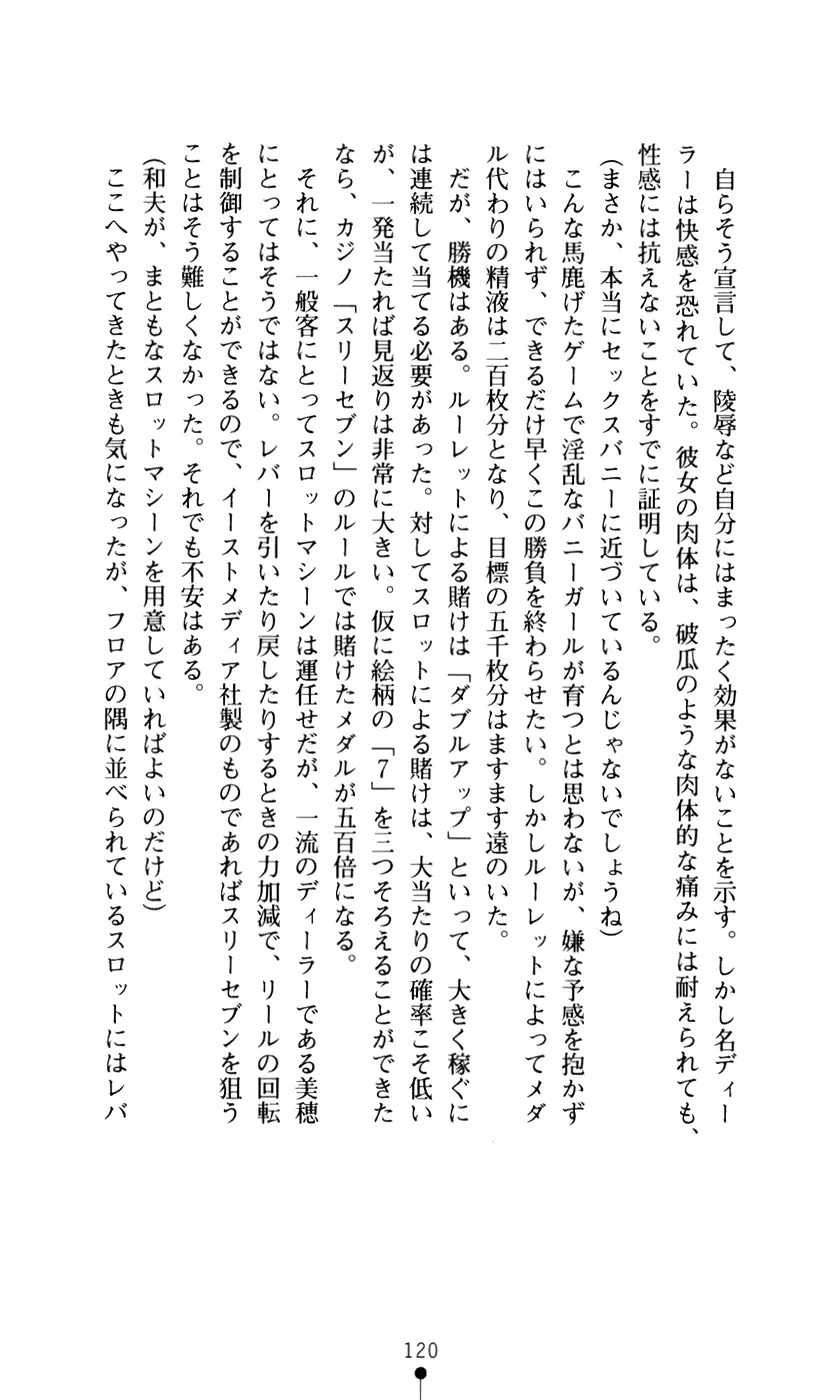 自らそう宣言して、陵辱など自分にはまったく効果がないことを示す。しかし名ディー
ラーは快感を恐れていた。彼女の肉体は、破瓜のような肉体的な痛みには耐えられても、
性感には抗えないことをすでに証明している。
(まさか、本当にセックスバニーに近づいているんじゃないでしょうね)
こんな馬鹿げたゲームで淫乱なバニーガールが育つとは思わないが、嫌な予感を抱かず
にはいられず、できるだけ早くこの勝負を終わらせたい。しかしルーレットによってメダ
ル代わりの精液は二百枚分となり、目標の五千枚分はますます遠のいた。
だが、勝機はある。ルーレットによる賭けは「ダブルアップ」といって、大きく稼ぐに
は連続して当てる必要があった。対してスロットによる賭けは、大当たりの確率こそ低い
が、一発当たれば見返りは非常に大きい。仮に絵柄の「７」を三つそろえることができた
なら、カジノ「スリーセブン」のルールでは賭けたメダルが五百倍になる。
それに、一般客にとってスロットマシーンは運任せだが、一流のディーラーである美穂
にとってはそうではない。レバーを引いたり戻したりするときの力加減で、リールの回転
を制御することができるので、イーストメディア社製のものであればスリーセブンを狙う
ことはそう難しくなかった。それでも不安はある。
(和夫が、まともなスロットマシーンを用意していればよいのだけど)
ここへやってきたときも気になったが、フロアの隅に並べられているスロットにはレバ
120